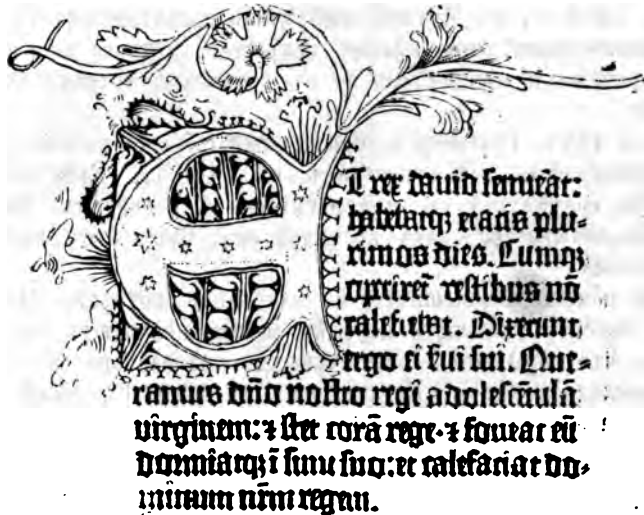 ET rex david senuerat:
habebatqʒ etatis plu-
rimos dies. Cumqʒ
operiret̄ vestibus nō
calefiebat. Dixerunt
ergo ei s̄ui sui. Que-
ramus dn̄o nostro regi adolescētulā
virginem: ⁊ stet corā rege· ⁊ foveat eū
dormiatqʒ ī sinu suo: et calefaciat do-
minum nr̄m regem.